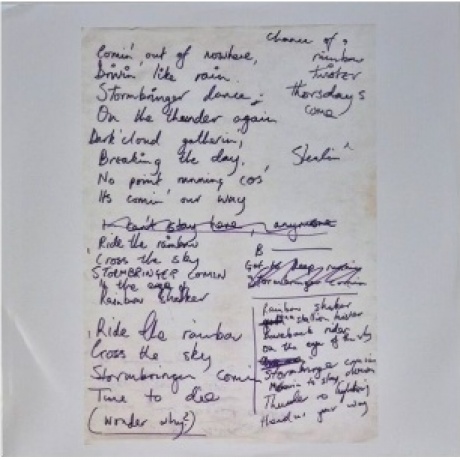 Comin' out of nowhere,
Drivin like rain.
Stormbringer dance,
On the thunder again
Dark cloud gatherin,
Breaking the day.
No point running cos'
Its comin' our way
I can't stay here, anymore
Ride the rainbow
Cross the sky
STORMBRINGER COMIN
In the eye of
Rainbow shaker
Ride the rainbow
Cross the sky
Stormbringer comin
Time to die
(wonder why?)
chance of,
rainbow
twister
thorsdays
come
Stealin'
B
Got to keep
Stormbringer comin
Rainbow shaker
stallion twister
Bareback rider
on the eye of the sky
Stormbringer comin
down
Meanin to stay
Thunder & lightning
Headin your way